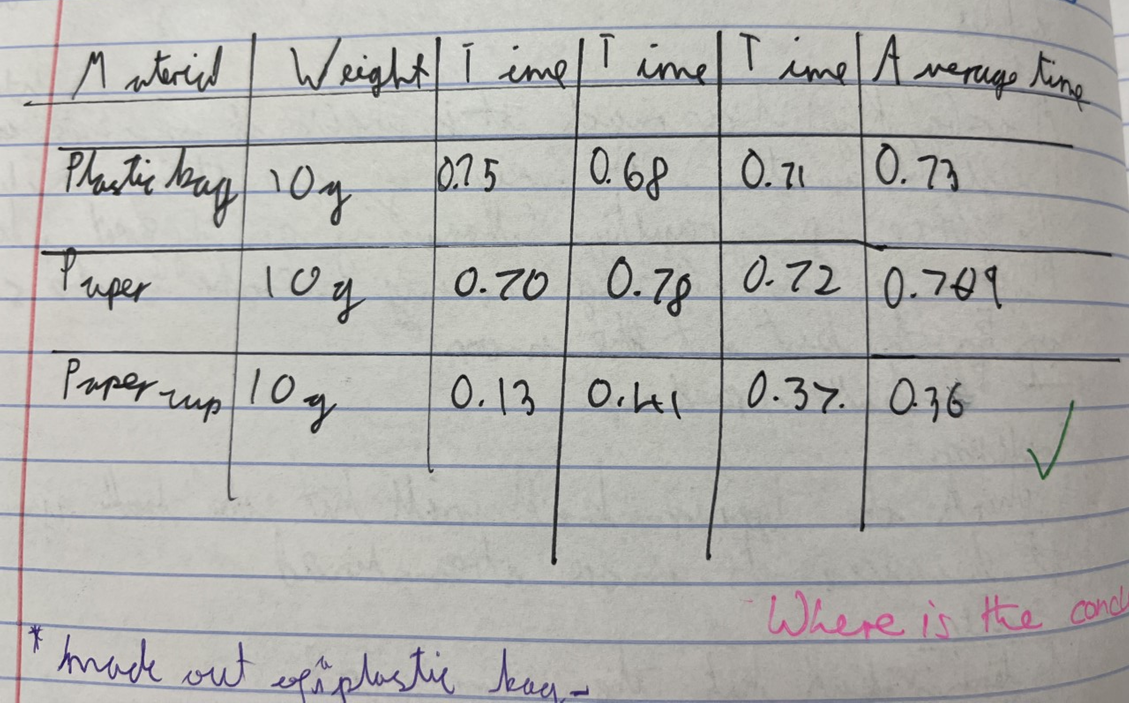 Material Weight Time Time Time Average time
Plastic bag 10g 0.75 0.68 0.71 0.73
Paper 10g 0.70 0.78 0.72 0.709
Paper cup 10g 0.13 0.41 0.37. 0.36
Where is the conc
* made out of a plastic bag-